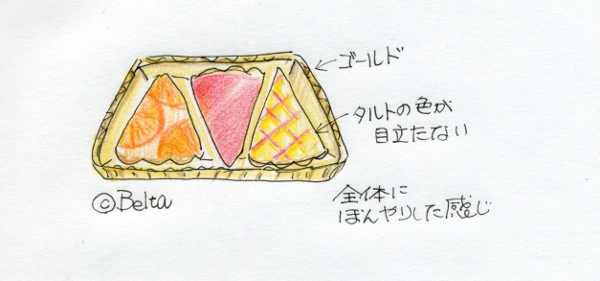 ゴールド
タルトの色が
目立たない
©Belta
全体に
ぼんやりした感じ